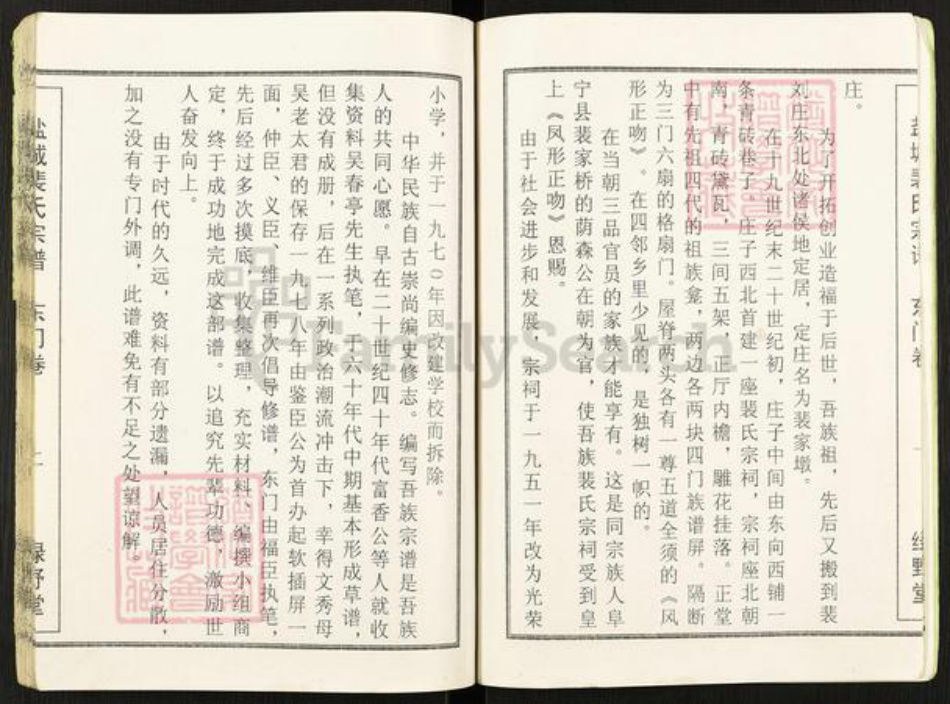 庄。
为了开拓创业造福于后世，吾族祖，先后又搬到裴
刘庄东北处诸侯地定居，定庄名为裴家墩。
在十九世纪末二十世纪初，庄子中间由东向西铺一
条青砖巷子，庄子西北首建一座裴氏宗祠，宗祠座北朝
南，青砖黛瓦，三间五架，正厅内檐，雕花挂落。正堂
中有先祖四代的祖族龛，两边各两块四门族谱屏。隔断
为三门六扇的格扇门。屋脊两头各有一尊五道全须的《风
形正吻》。在四邻乡里少见的，是独树一帜的。
在当朝三品官员的家族才能享有。这是同宗族人阜
宁县裴家桥的荫森公在朝为官，使吾族裴氏宗祠受到皇
上《凤形正吻》恩赐。
由于社会进步和发展，宗祠于一九五一年改为光荣
盐城裴氏宗谱 东门卷 一 绿野堂
小学，并于一九七〇年因改建学校而拆除。
中华民族自古崇尚编史修志。编写吾族宗谱是吾族
人的共同心愿。早在二十世纪四十年代富香公等人就收
集资料吴春亭先生执笔，于六十年代中期基本形成草谱，
但没有成册，后在一系列政治潮流冲击下，幸得文秀母
吴老太君的保存一九七八年由鉴臣公为首办起软插屏一
面，仲臣、义臣、维臣再次倡导修谱，东门由福臣执笔，
先后经过多次摸底，收集整理，充实材料、编撰小组商
定，终于成功地完成这部谱。以追究先辈功德，激励世
人奋发向上。
由于时代的久远，资料有部分遗漏，人员居住分散，
加之没有专门外调，此谱难免有不足之处望谅解。
盐城裴氏宗谱 东门卷 二 绿野堂
FamilySearch